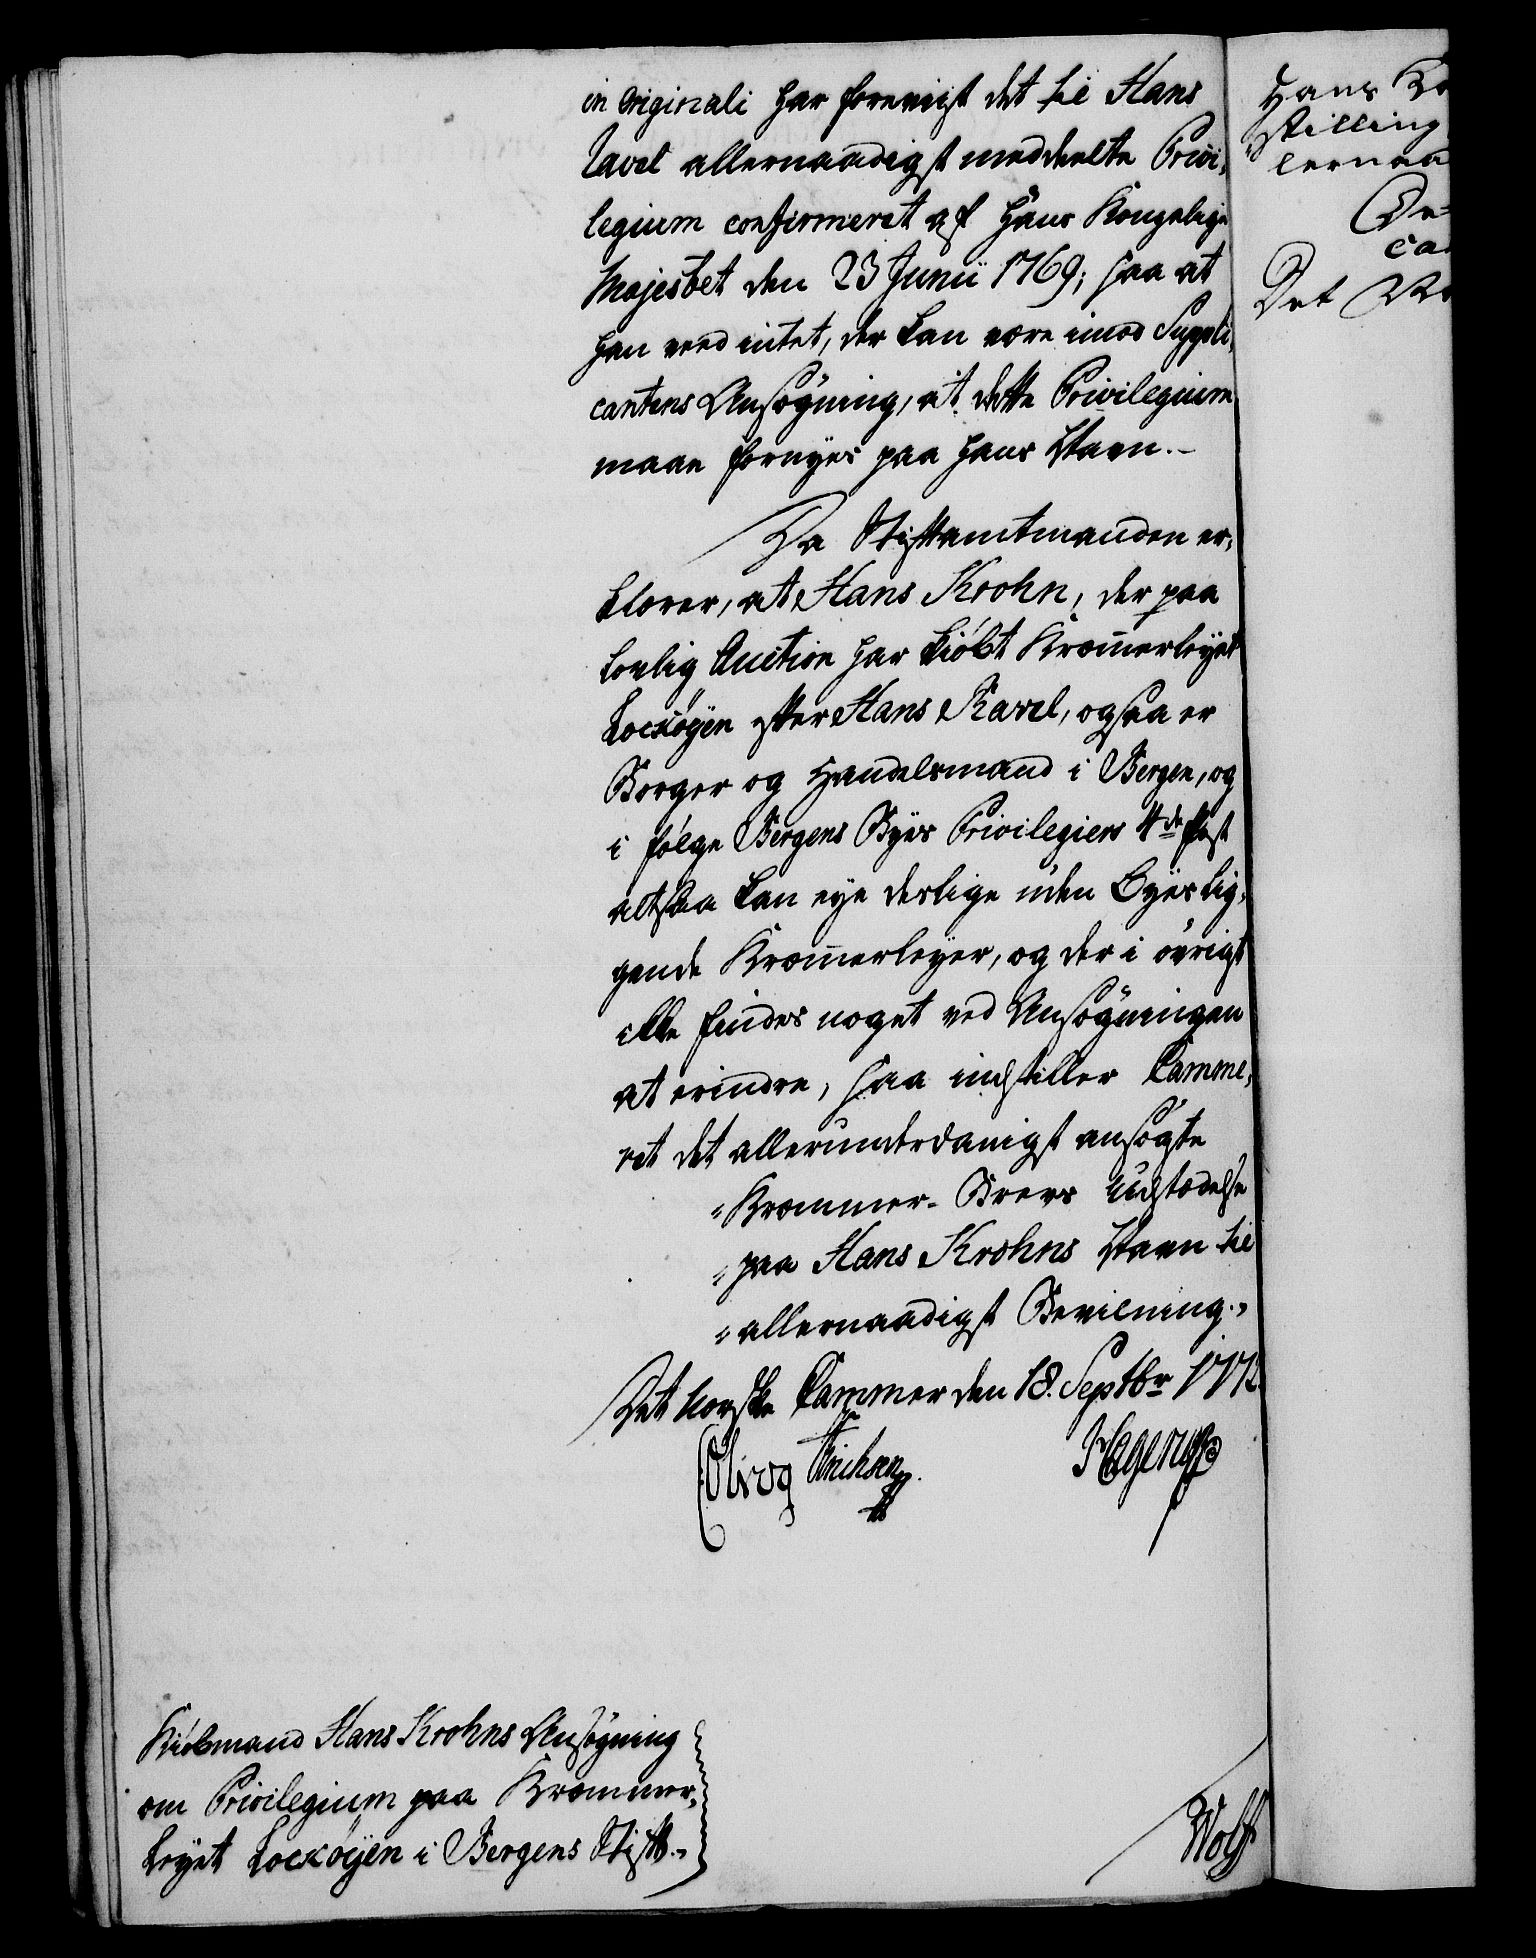 in originali har foreviist det til Hans
Tavel allernaadigst meddeelte Privi-
legium confirmeret af Hans Kongelige
Majestet den 23 Junii 1769; saa at
han veed intet, der kan være imod Suppli-
cantens Ansøgning, at dette Privilegium
maae fornyes paa hans Navn.-
Da Stiftamtmanden er-
klærer, at Hans Krohn, der paa
lovlig Auction har kiøbt Kræmerleyet
Locksøyen efter Hans Tavel, ogsaa er
Borger og Handelsmand i Bergen, og
i følge Bergens Byes Privilegiers 4de Post
altsaa kan eye deslige uden Byes lig-
gende Kræmerleyer, og der i øvrigt
ikke findes noget ved Ansøgningen
at erindre, saa indstiller Camme-
ret det allerunderdanigst ansøgte
"Kræmmer-Brevs Udstædelse
"paa Hans Krohns Navn til
"allernaadigst Bevilning.,
Det Norske Cammer den 18. Septbr 177
Erichsen. Hagerup
Kiøbmand Hans Krohns Ansøgning
om Privilegium paa Kræmmer-
Leyet Locksøyen i Bergens Stift.,
Wolff
Hans Ko
stilling
lernaa
Det No